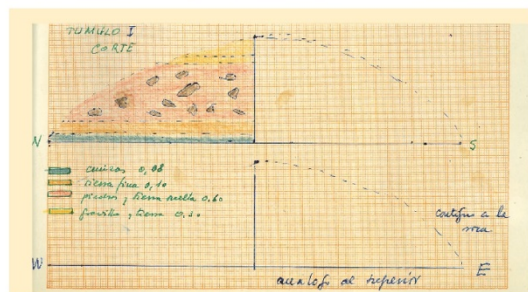 TUMULO I
CORTE
N
S
cenizas 0,08
tierra fina 0,10
piedras y tierra suelta 0.60
gravilla y tierra 0.30
contiguo a la
roca
W
E
analogo al superior